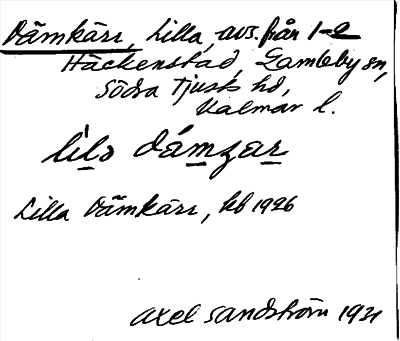 Dämkärr, Lilla, avs. från 1-2
Häckenstad, Gamleby sn,
Södra Tjusts hd,
Kalmar l.
lila dámʒar
Lilla Dämkärr, kb 1926
Axel Sandström 1931